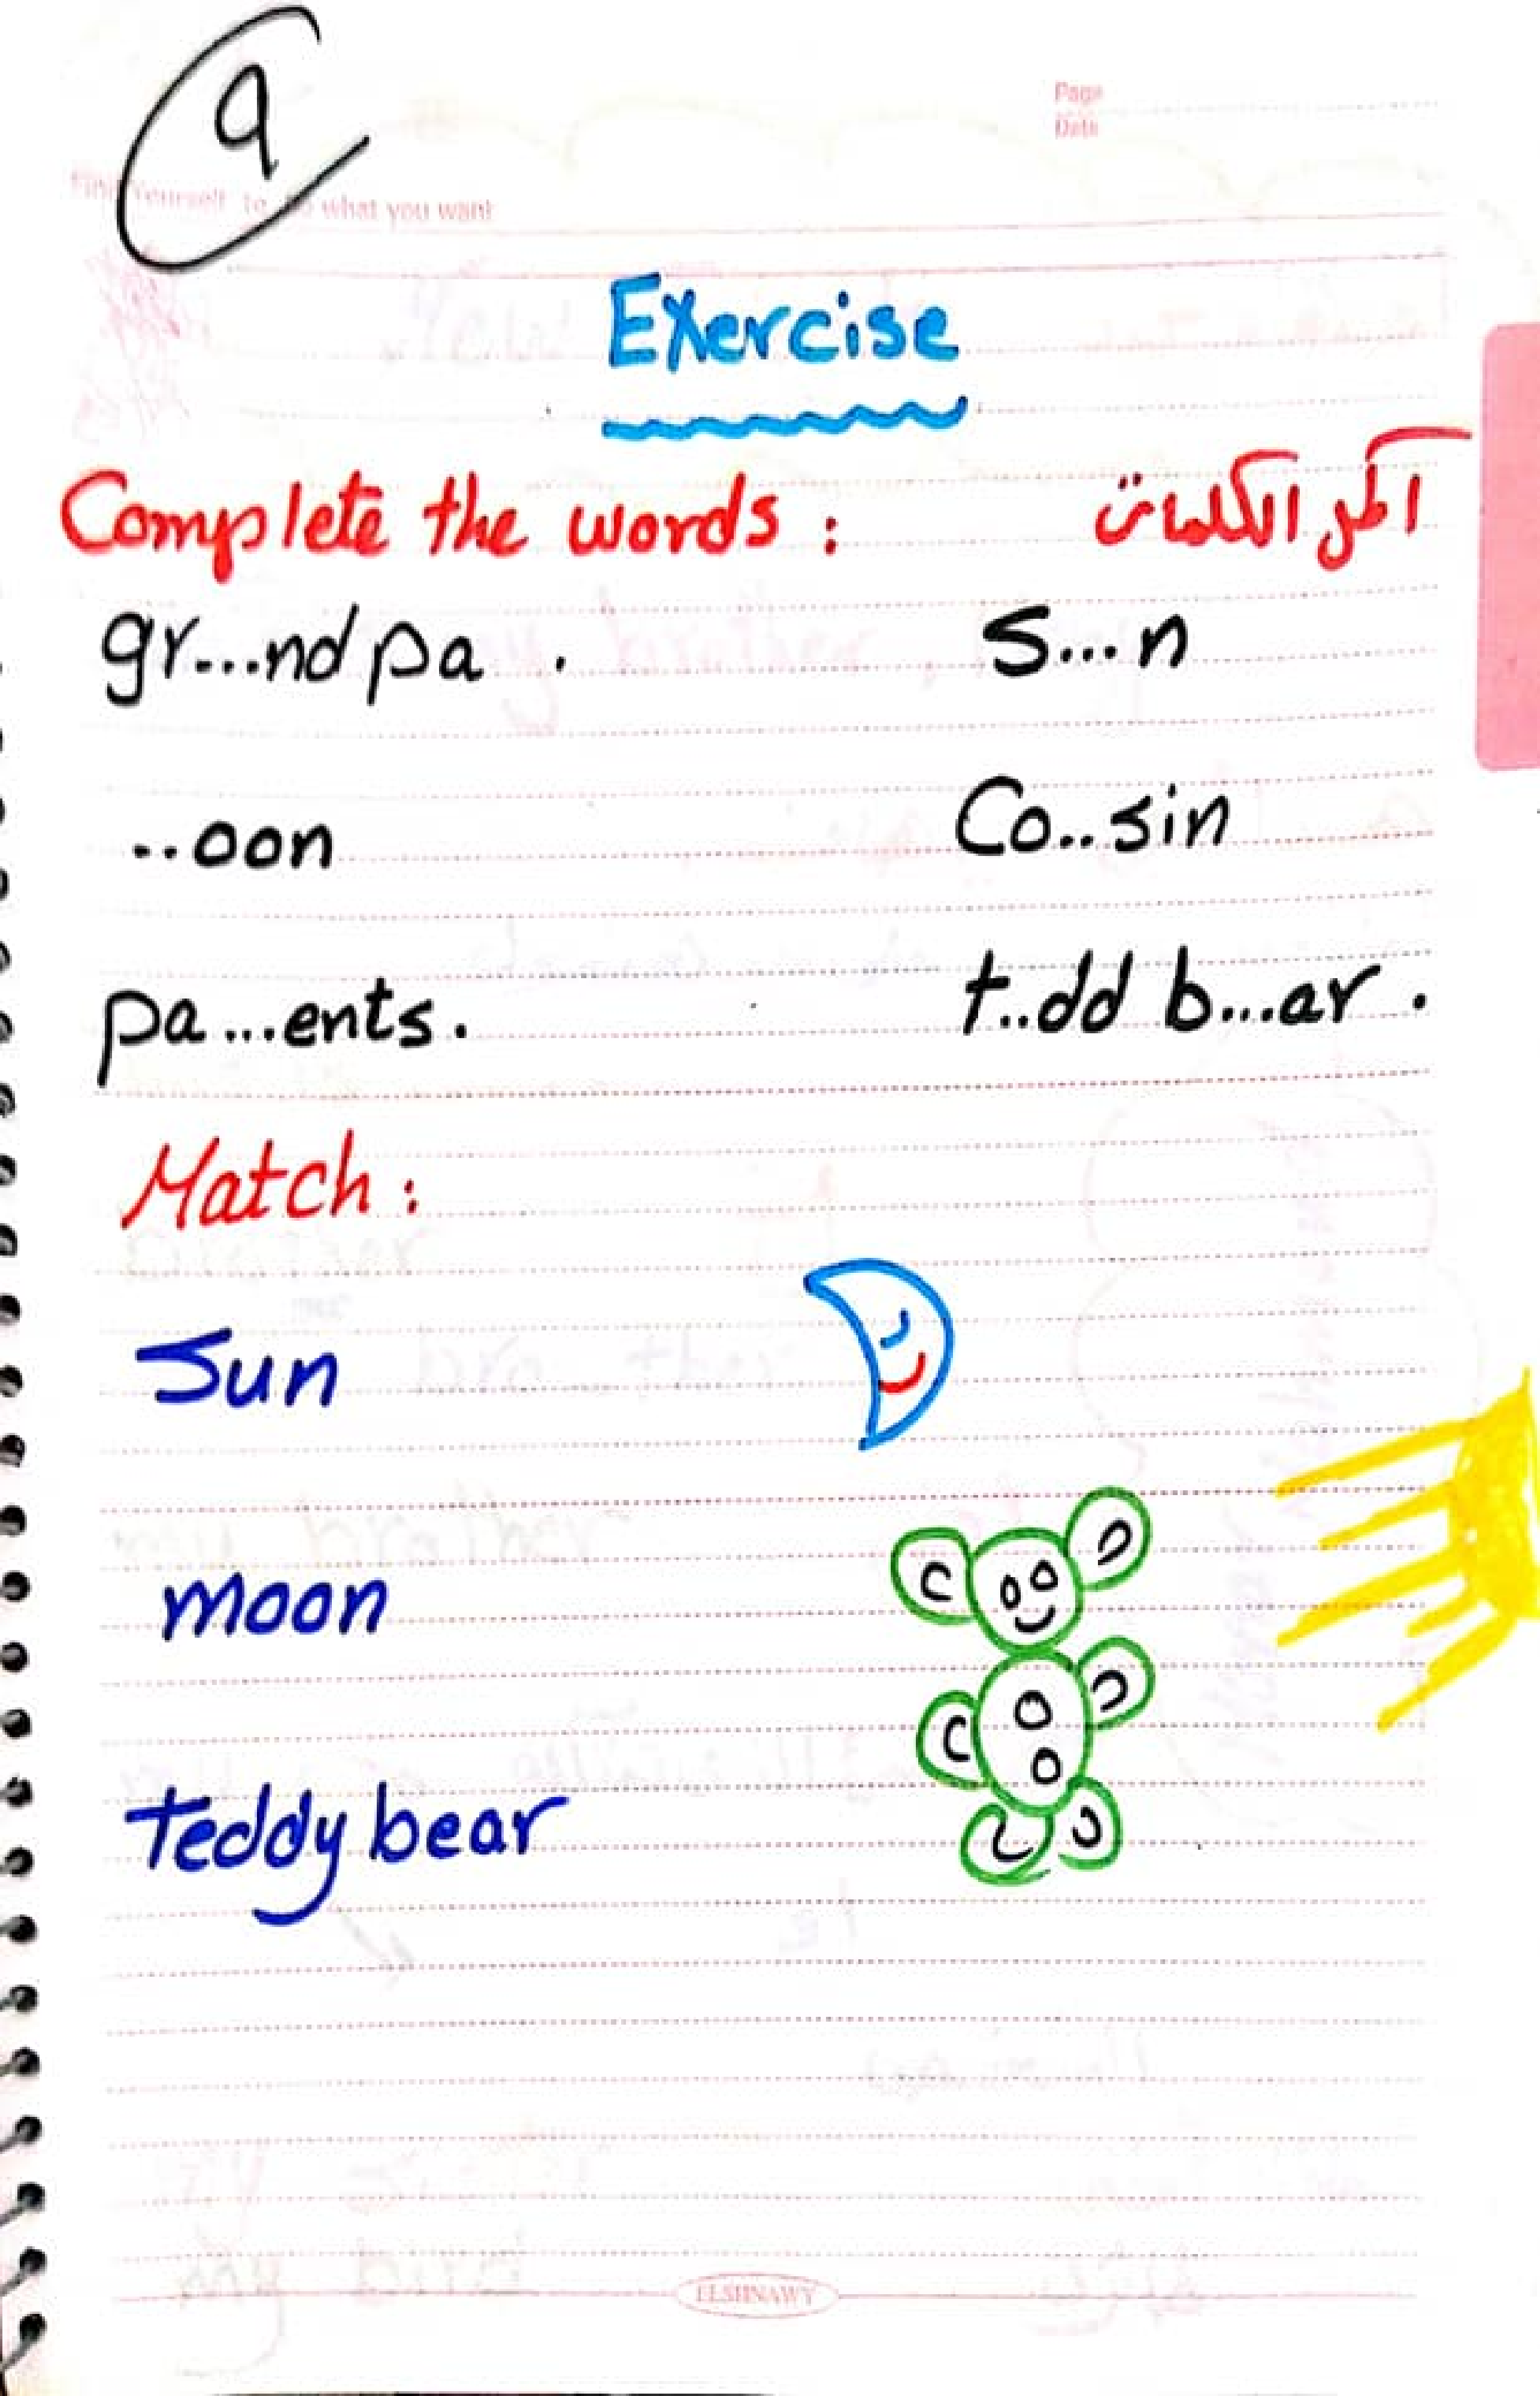 9
Page
Date
Find Yourself to do what you want
Exercise
Complete the words : اكمل الكلمات
gr...ndpa . s...n
..oon Co..sin
pa...ents. t..dd b...ar .
Match :
Sun
moon
Teddy bear
ELSHNAWY